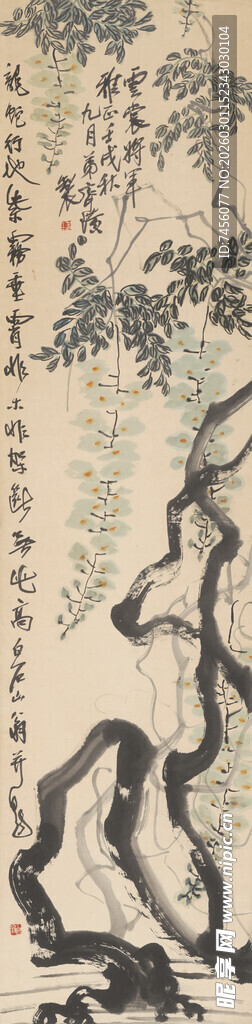 雲裳將軍
雅正壬戌秋
九月弟齊璜
製
龍蛇行地紫霧垂霄非木非架斷無此高白石山翁并題
ID:7456077 NO:20260301152343030104
昵享网 www.nipic.cn